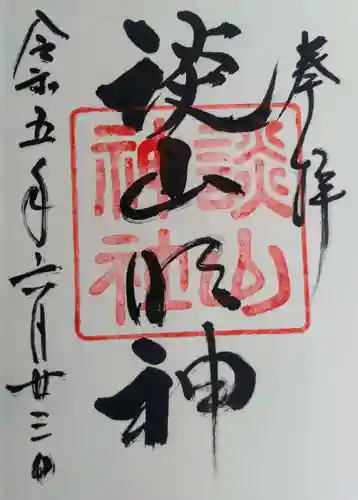 奉拝
談山明神
談山神社
令和五年六月廿三日